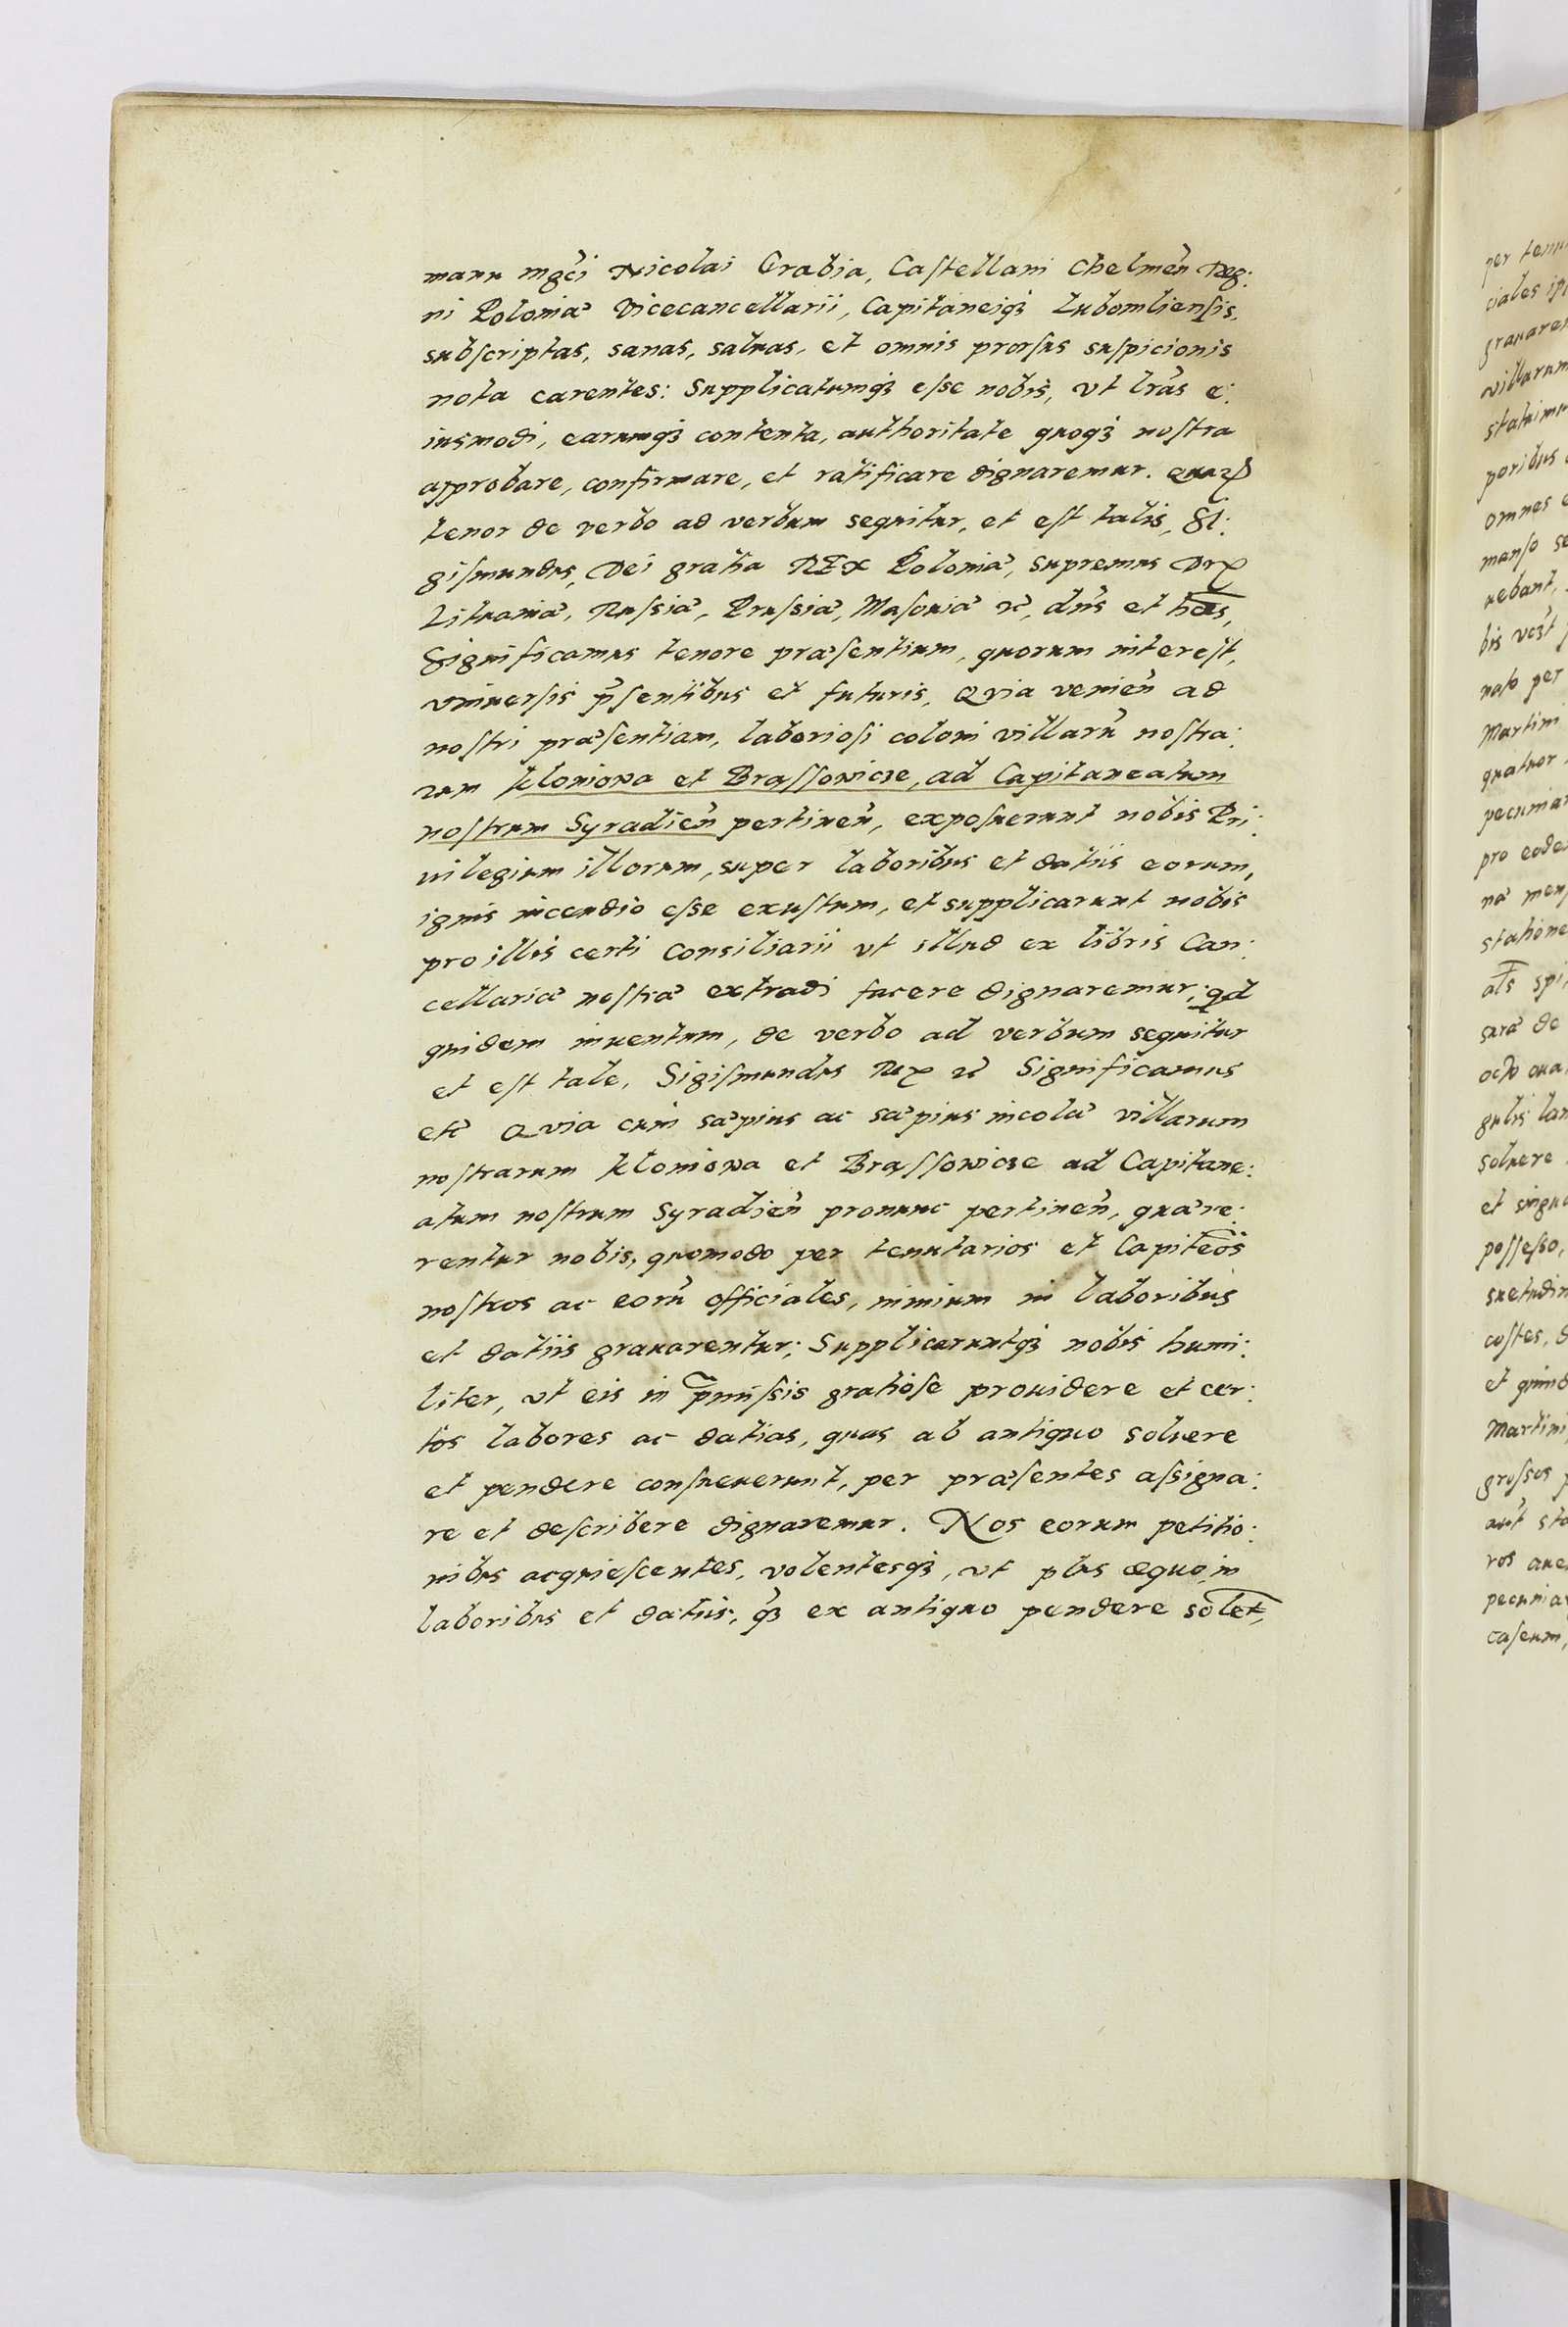 manu mgci Nicolai Grabia, Castellani Chelmen Reg:
ni Poloniæ Vicecancellarii, Capitaneiqꝫ Lubomliensis,
subscriptas, sanas, saluas, et omnis prorsus suspicionis
nota carentes: Supplicatumqꝫ esse nobis, vt lras e:
iusmodi, earumqꝫ contenta, authoritate quoqꝫ nostra
approbare, confirmare, et ratificare dignaremur. Quaꝝ
tenor de verbo ad verbum sequitur, et est talis, Si:
gismundus, Dei gratia REX Poloniæ, supremus Dux
Lituaniæ, Russiæ, Prussiæ, Masouiæ ꝛc, dns et hæs,
Significamus tenore præsentium, quorum interest,
vniuersis pn̄sentibus et futuris, Quia venien ad
nostri præsentiam, laboriosi coloni villaru nostra:
rum Kloniowa et Brassowicze, ad Capitaneatum
nostrum Syradien pertinen, exposuerunt nobis Pri:
uilegium illorum, super laboribus et datiis eorum,
ignis incendio esse exustum, et supplicarunt nobis
pro illis certi Consiliarii vt illud ex libris Can:
cellariæ nostræ extradi facere dignaremur, qd
quidem inuentum, de verbo ad verbum sequitur
et est tale, Sigismundus Rex ꝛc Significamus
etc Quia cum sæpius ac sæpius incolæ villarum
nostrarum Kloniowa et Brassowicze ad Capitane:
atum nostrum Syradien pronunc pertinen, quære:
rentur nobis, quomodo per tenutarios et Capiteos
nostros ac eoru officiales, nimium in laboribus
et datiis grauarentur; Supplicaruntqꝫ nobis humi:
liter, vt eis in pmissis gratiose prouidere et cer:
tos labores ac datias, quas ab antiquo soluere
et pendere consueuerunt, per præsentes assigna:
re et describere dignaremur. Nos eorum petitio:
nibus acquiescentes, volentesqꝫ, vt plus æquo in
laboribus et datiis, qꝫ ex antiquo pendere solet,
per
ciales
villarum
omnes
manso se
uebant,
bis
per
Martini
quatuor
pro
de
octo oua,
gulis
soluere
et
possesso,
et
Martini
grossos
pecunia
caseum,